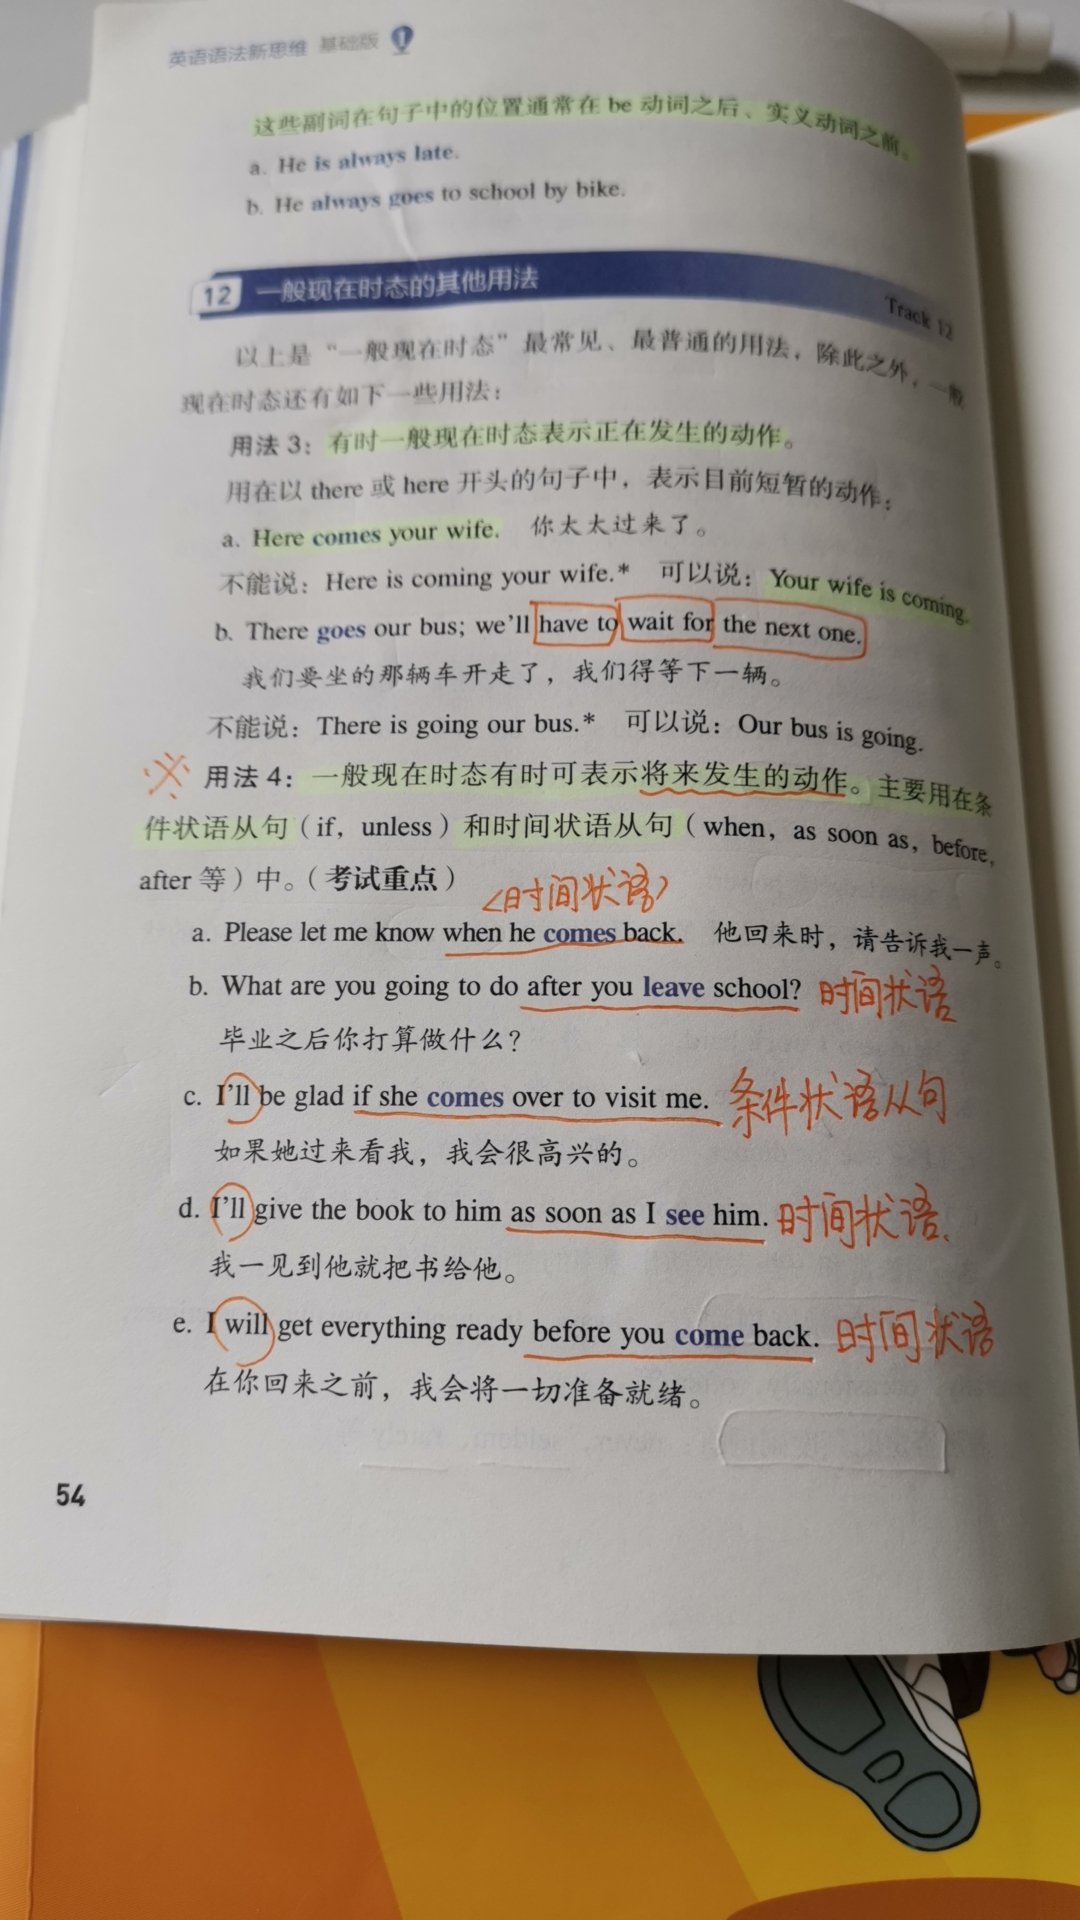 英语语法新思维 基础版 1
这些副词在句子中的位置通常在 be 动词之后、实义动词之前。
a. He is always late.
b. He always goes to school by bike.
12 一般现在时态的其他用法
Track 12
以上是“一般现在时态”最常见、最普通的用法，除此之外，一般
现在时态还有如下一些用法：
用法 3：有时一般现在时态表示正在发生的动作。
用在以 there 或 here 开头的句子中，表示目前短暂的动作：
a. Here comes your wife. 你太太过来了。
不能说：Here is coming your wife.* 可以说：Your wife is coming.
b. There goes our bus; we'll have to wait for the next one.
我们要坐的那辆车开走了，我们得等下一辆。
不能说：There is going our bus.* 可以说：Our bus is going.
※ 用法 4：一般现在时态有时可表示将来发生的动作。主要用在条
件状语从句（if，unless）和时间状语从句（when，as soon as，before，
after 等）中。（考试重点）
<时间状语>
a. Please let me know when he comes back. 他回来时，请告诉我一声。
b. What are you going to do after you leave school? 时间状语
毕业之后你打算做什么？
c. I'll be glad if she comes over to visit me. 条件状语从句
如果她过来看我，我会很高兴的。
d. I'll give the book to him as soon as I see him. 时间状语.
我一见到他就把书给他。
e. I will get everything ready before you come back. 时间状语
在你回来之前，我会将一切准备就绪。
54